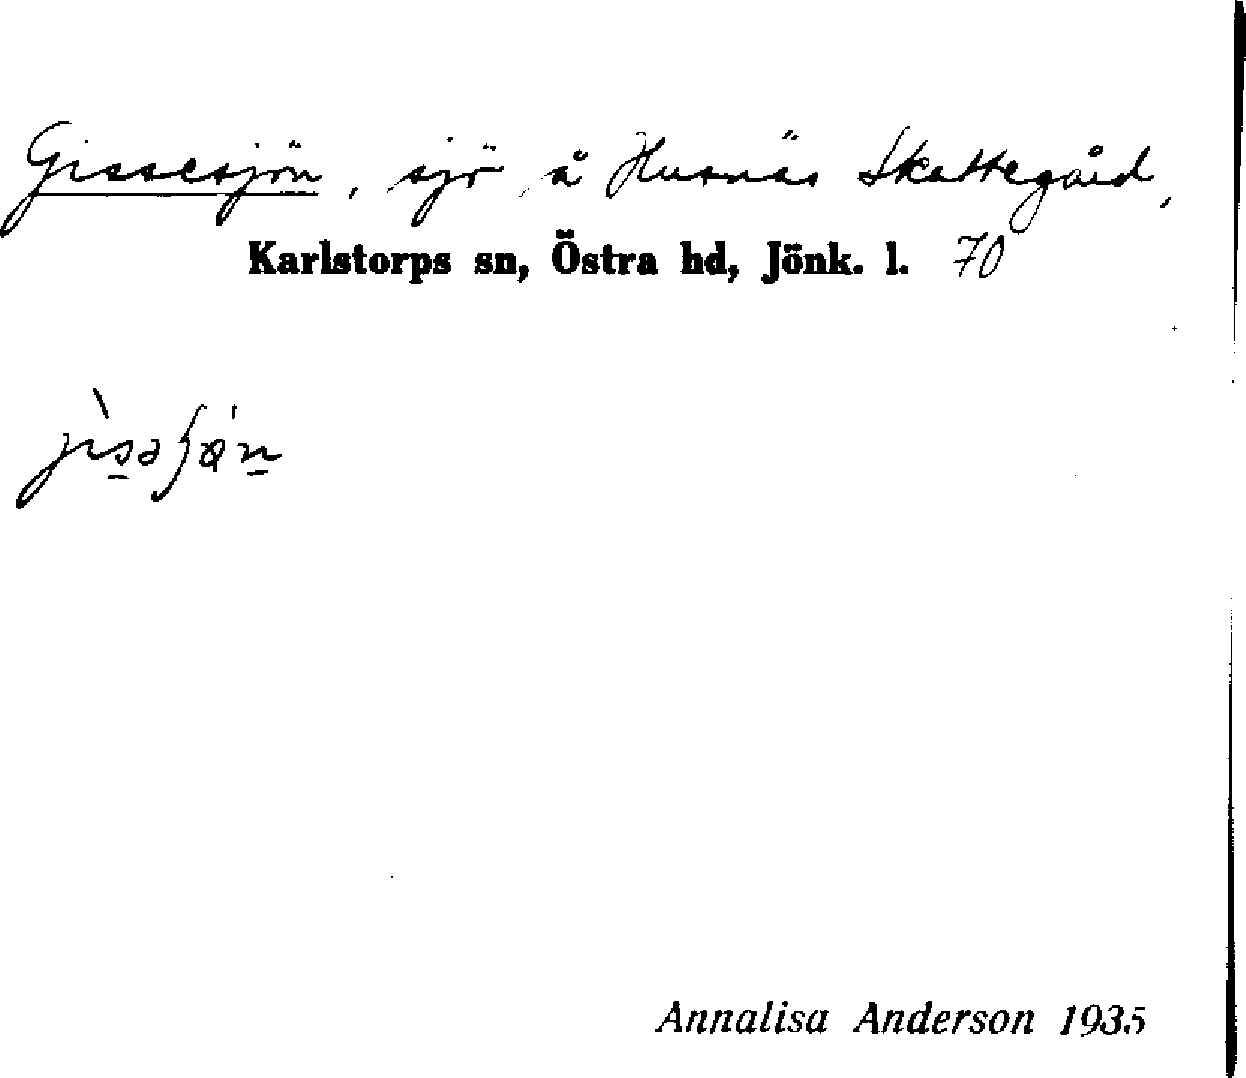 Gissesjön, sjö å Husnäs Skattegård,
Karlstorps sn, Östra hd, Jönk. l. 70
Annalisa Anderson 1935